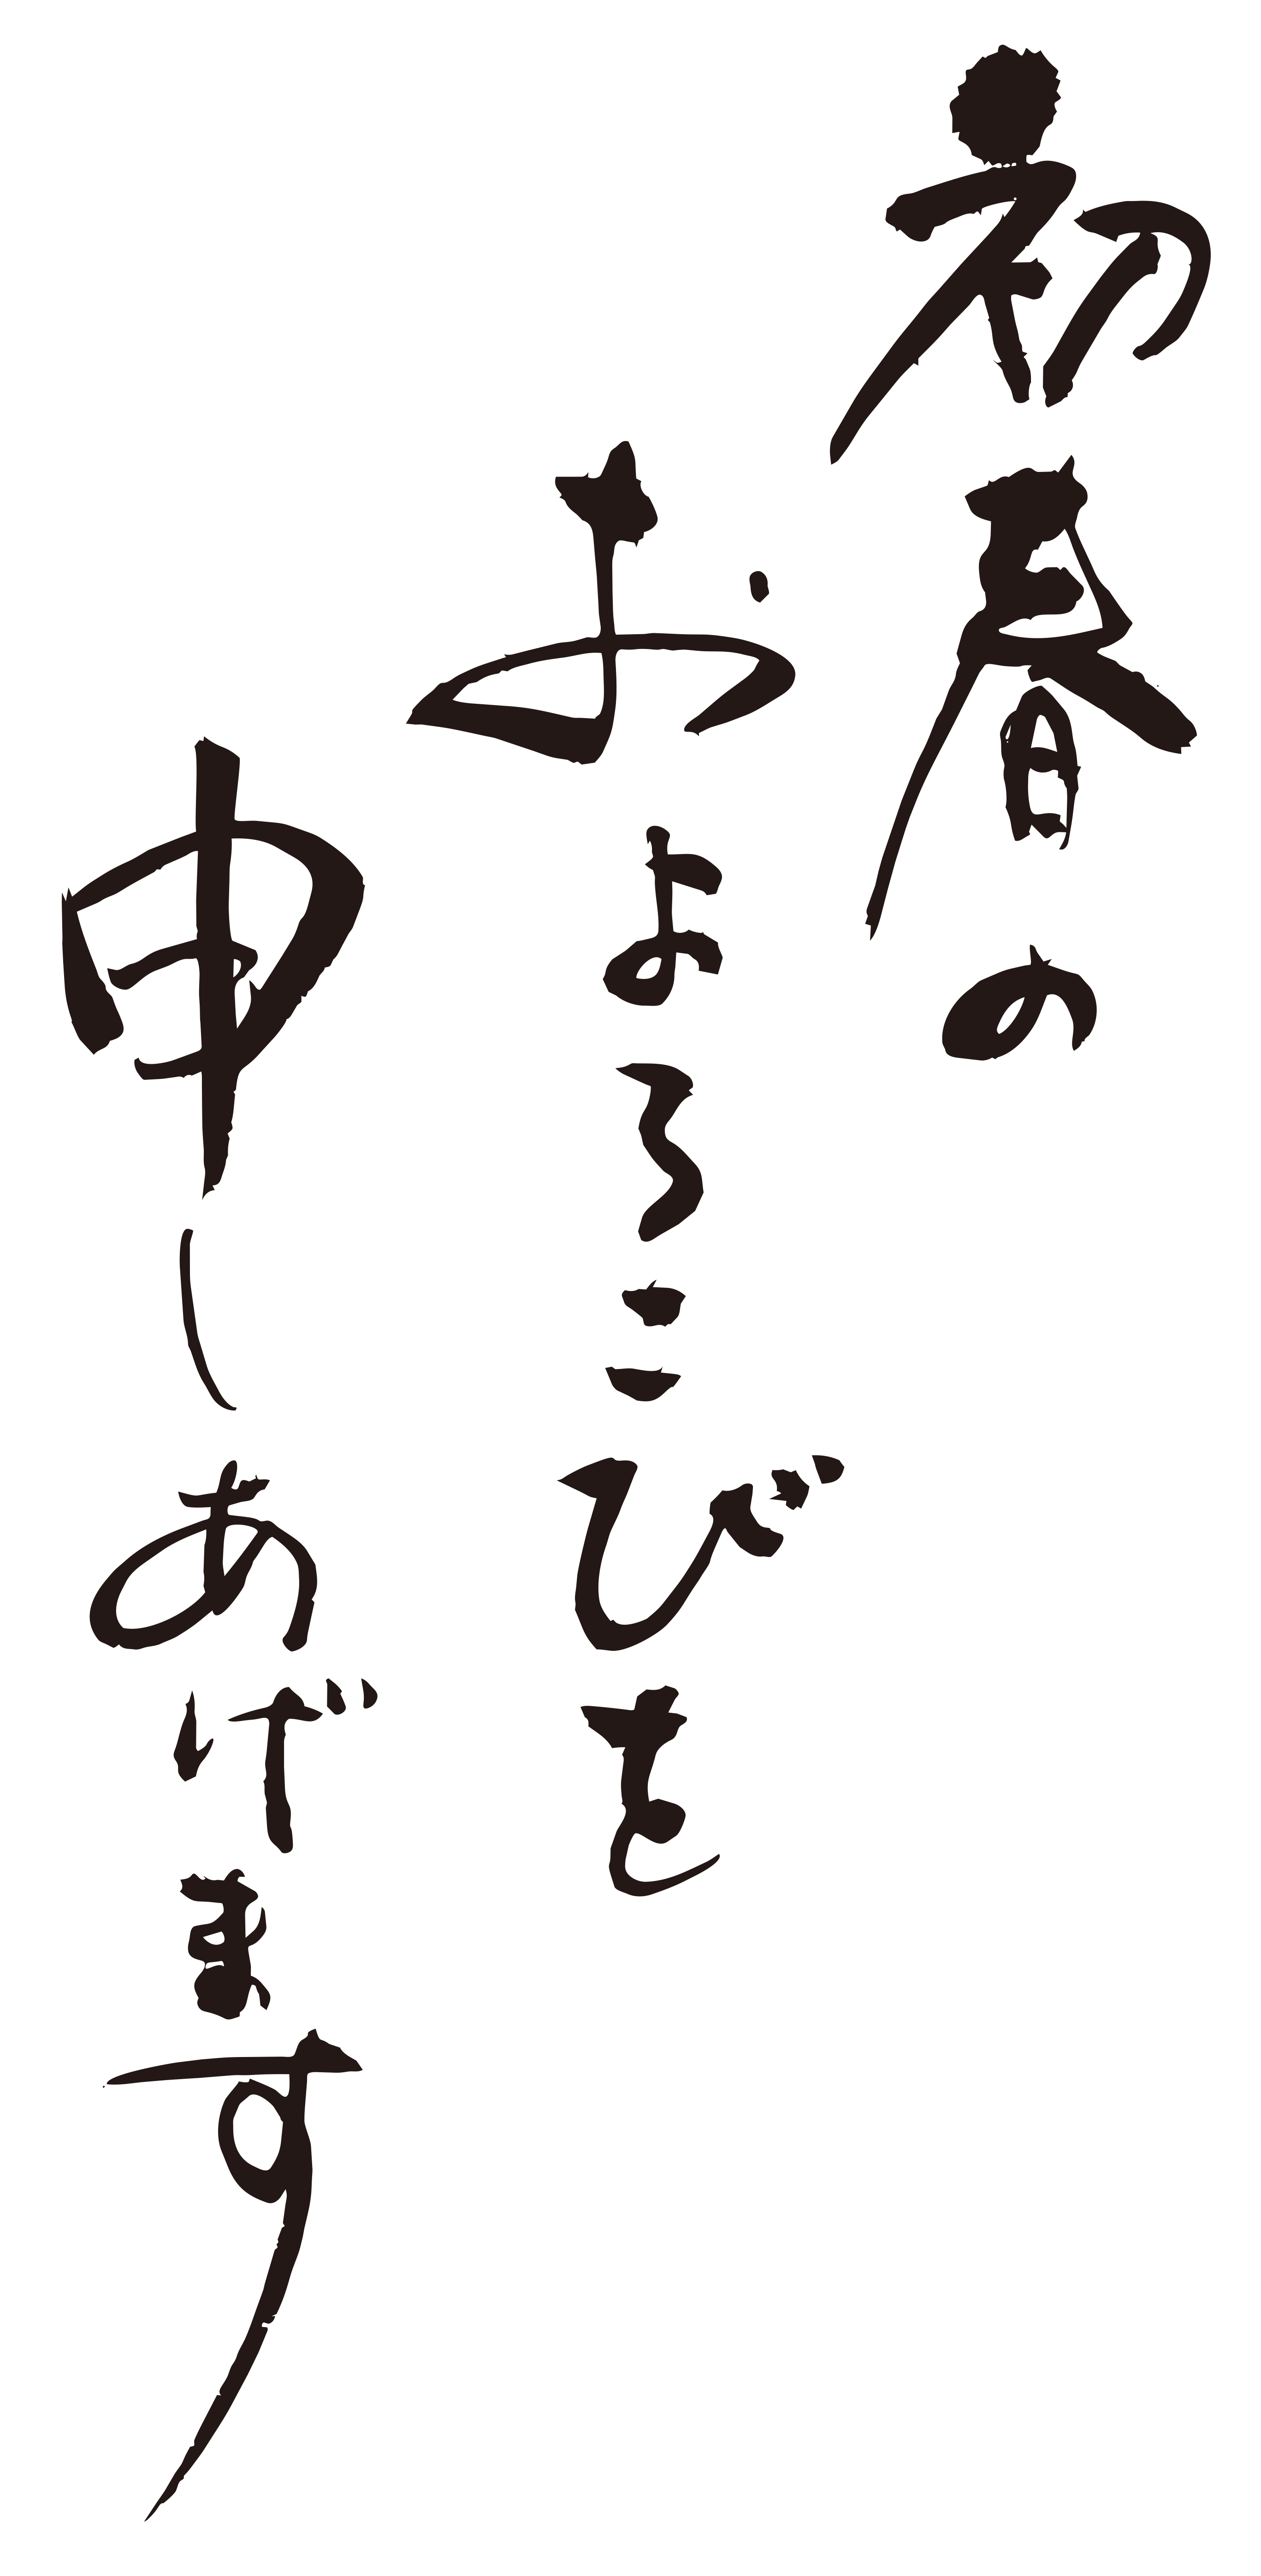 初春の
およろこびを
申しあげます